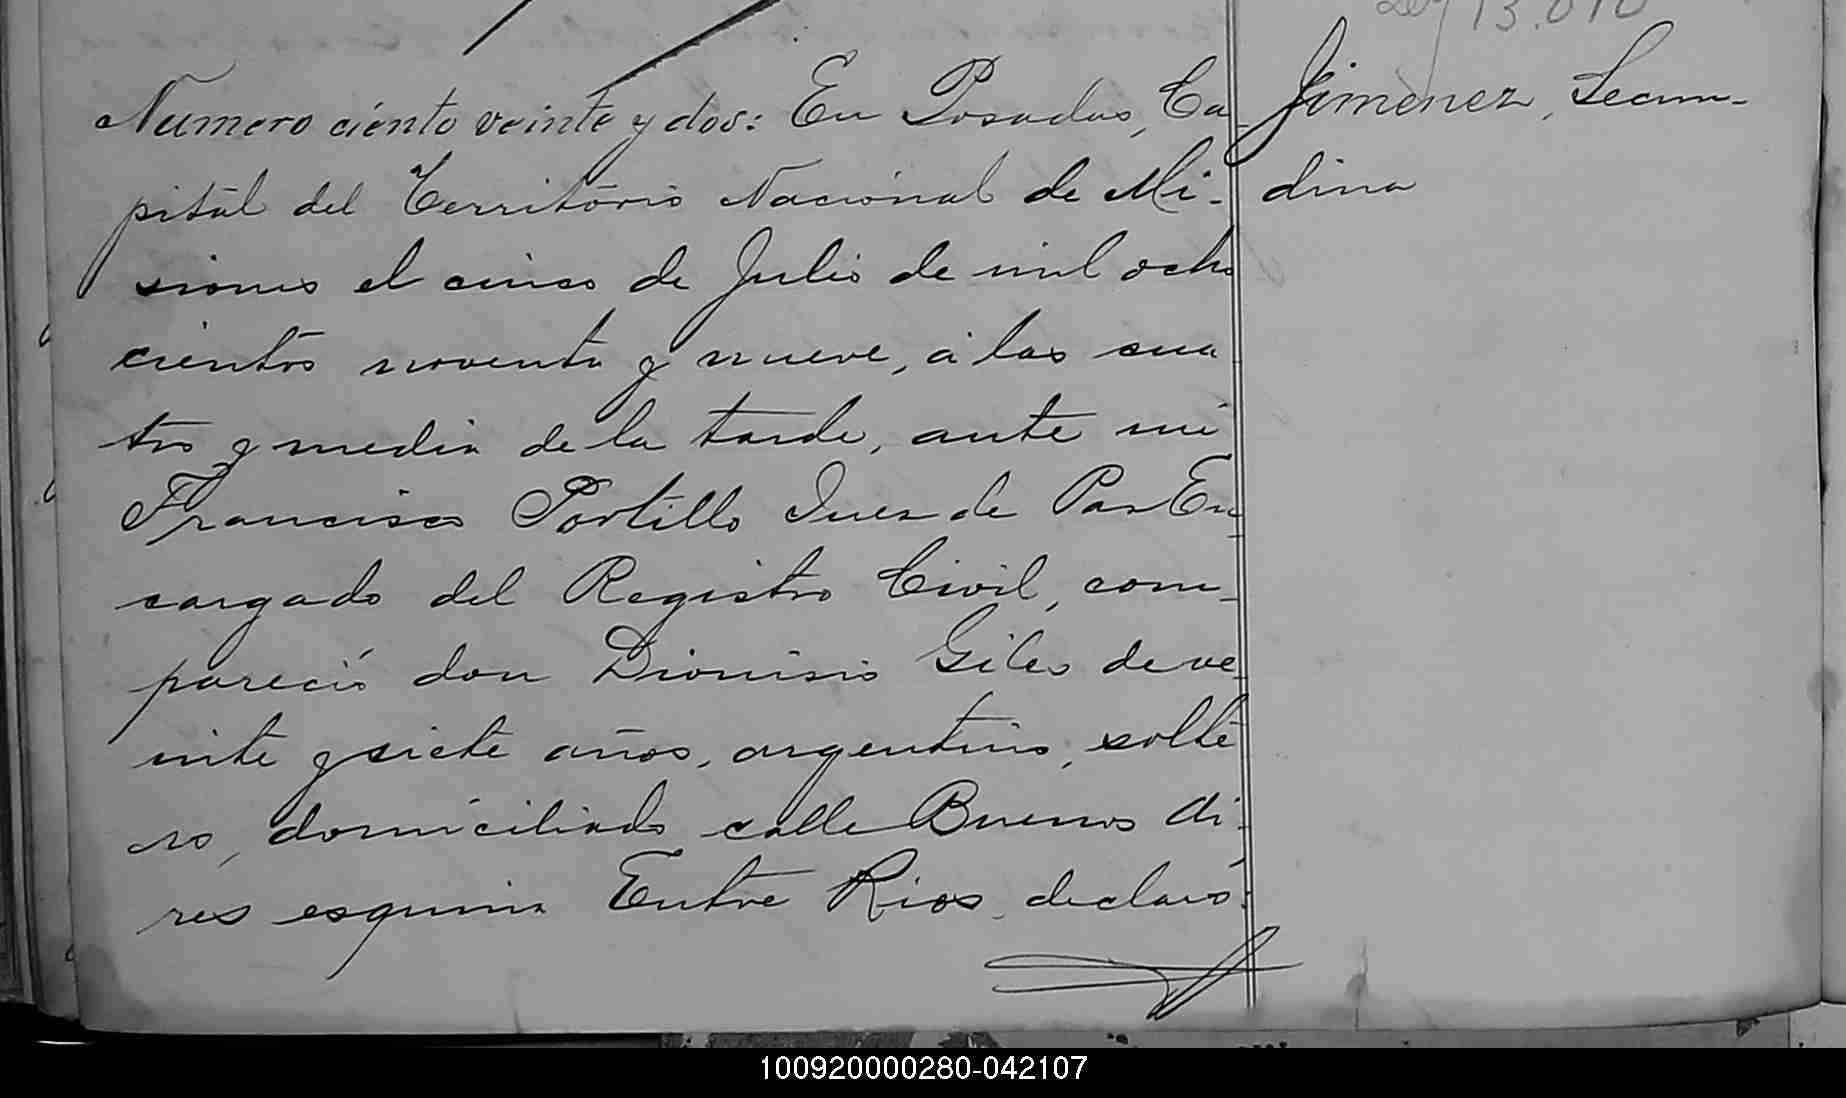 Ley 13.010
Jimenez, Secun-
dina
Numero ciento veinte y dos: En Posadas, Ca-
pital del Territorio Nacional de Mi-
siones el cinco de Julio de mil ocho
cientos noventa y nueve, á las cua
tro y media de la tarde, ante mi
Francisco Portillo Juez de Paz En-
cargado del Registro Civil, com-
pareció don Dionisio Giles de ve-
inte y siete años, argentino, solte
ro, domiciliado calle Buenos Ai-
res esquina Entre Rios, declaró:
100920000280-042107